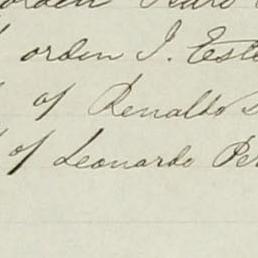 orden
orden J. Este
of Renaldo
of Leonardo Per